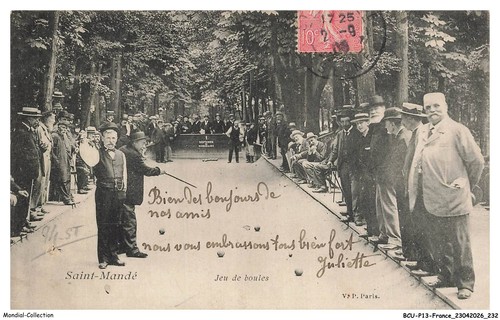 17 25
2 - 9
10
Bien des bonjours de
nos amis
nous vous embrassons tous bien fort
Juliette
Saint-Mandé
Jeu de boules
Vve P. Paris.
Mondial-Collection
BCU-P13-France_23042026_232